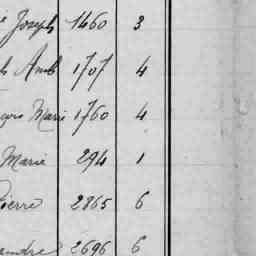 Joseph 1460 3
Amb 1707 4
Marie 1760 4
Marie 294 1
Pierre 2865 6
2696 6